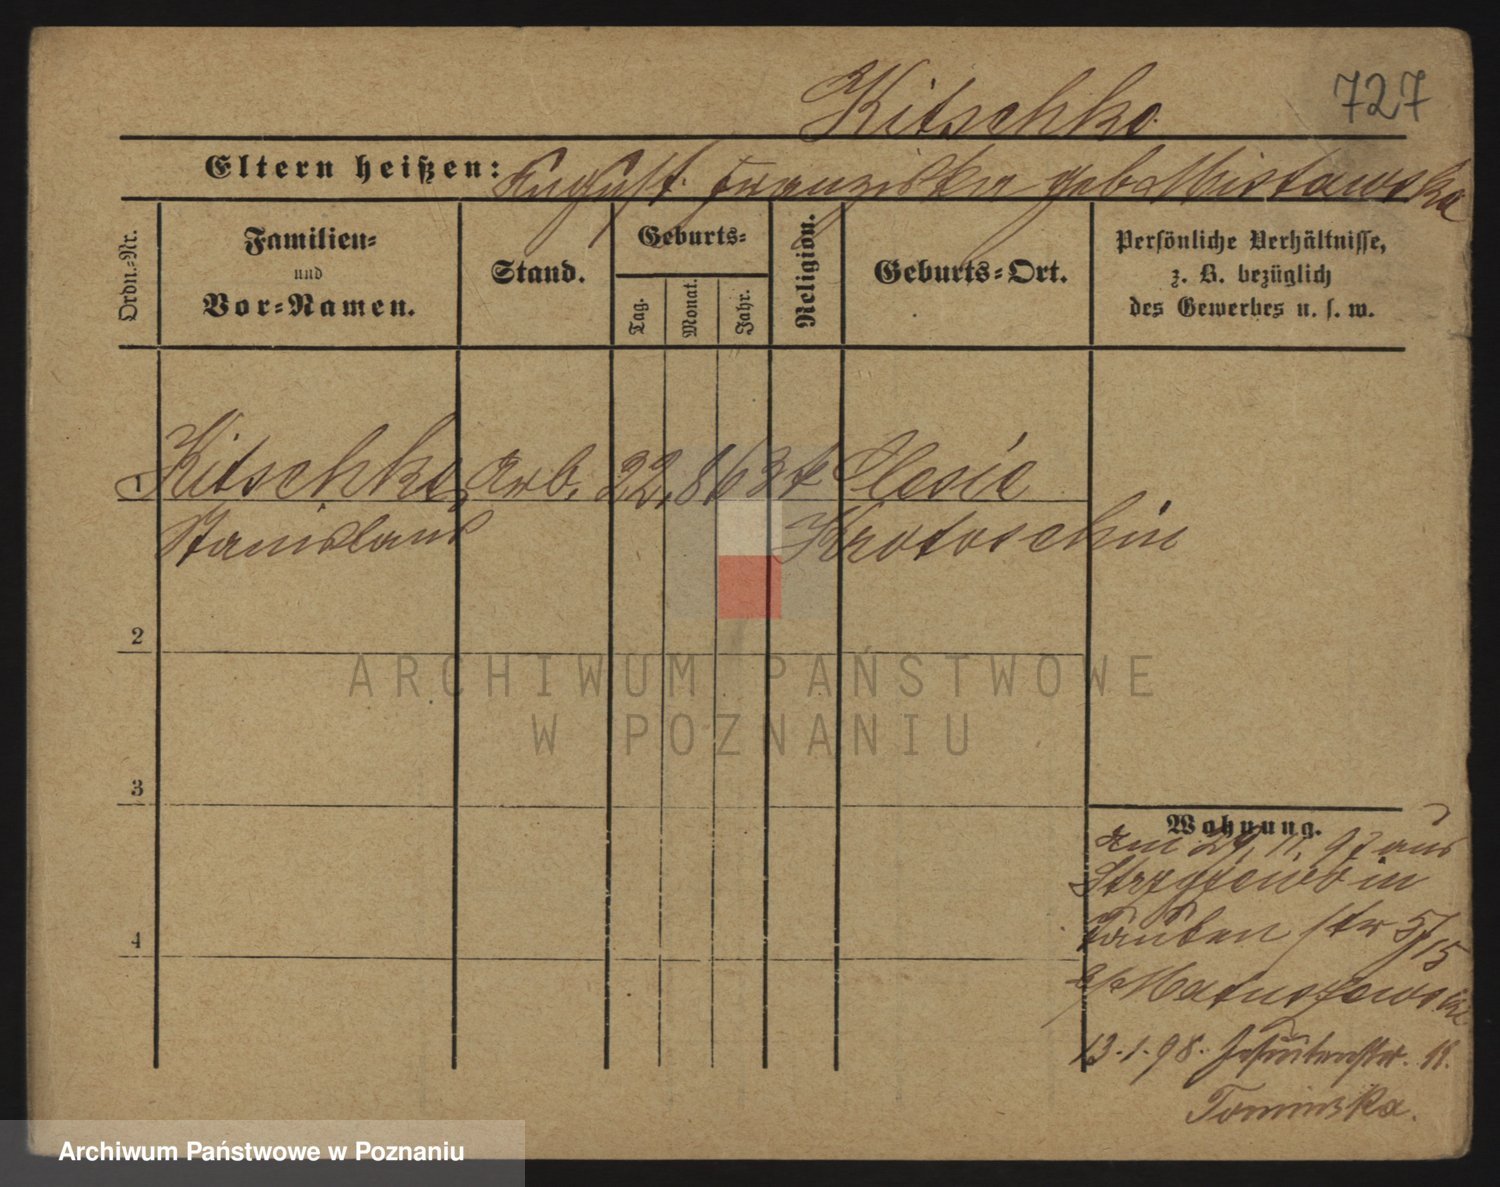 Kitschke
727
Eltern heißen: August Franziska geb Mistawska
Ordn.-Nr.
Familien-
und
Vor-Namen.
Stand.
Geburts-
Tag.
Monat.
Jahr.
Religion.
Geburts-Ort.
Persönliche Verhältnisse,
z. B. bezüglich
des Gewerbes u. s. w.
1 Kitschke Arb. 22. 8 63 k
Stanislaus Krotoschin
2
3
4
Wohnung.
am 29. 11. 97 aus
Strzyzewo in
Tauben str 5/15
b/ Matuszewski
13.1.98. Jesuitenstr. 11.
Tominska.
ARCHIWUM PAŃSTWOWE
W POZNANIU
Archiwum Państwowe w Poznaniu